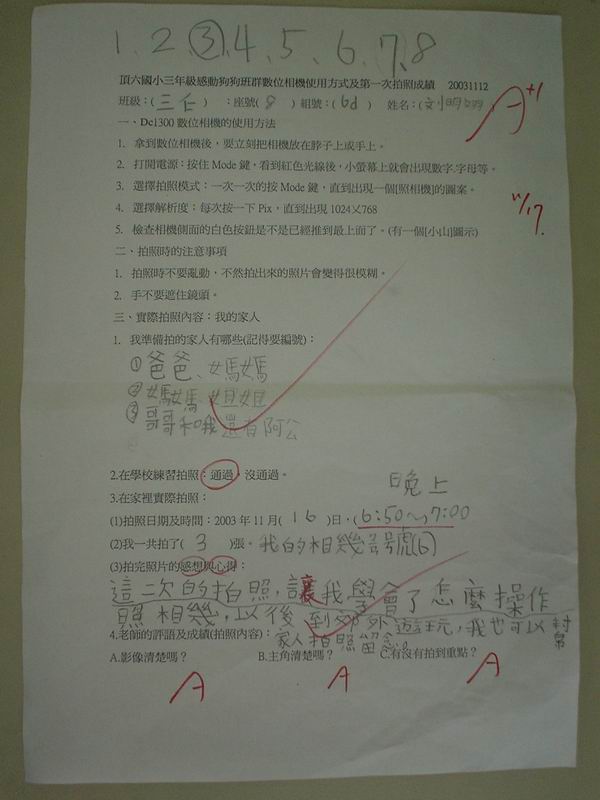 1、2、③、4、5、6、7、8
頂六國小三年級感動狗狗班群數位相機使用方式及第一次拍照成績 20031112
班級:(三仁) :座號(8) 組號:(6d) 姓名:(
A+1
一、Dc1300 數位相機的使用方法
1. 拿到數位相機後,要立刻把相機放在脖子上或手上。
2. 打開電源:按住 Mode 鍵,看到紅色光線後,小螢幕上就會出現數字.字母等。
3. 選擇拍照模式:一次一次的按 Mode 鍵,直到出現一個[照相機]的圖案。
4. 選擇解析度:每次按一下 Pix,直到出現 1024╳768
11/17
5. 檢查相機側面的白色按鈕是不是已經推到最上面了。(有一個[小山]圖示)
二、拍照時的注意事項
1. 拍照時不要亂動,不然拍出來的照片會變得很模糊。
2. 手不要遮住鏡頭。
三、實際拍照內容:我的家人
1. 我準備拍的家人有哪些(記得要編號):
①爸爸、媽媽
②媽媽 姐姐
③哥哥和我還有阿公
2.在學校練習拍照:通過,沒通過。
3.在家裡實際拍照:
晚上
(1)拍照日期及時間:2003 年 11 月(16)日,(6:50~7:00
(2)我一共拍了(3)張。我的相幾号號(6)
(3)拍完照片的感想與心得:
這二次的拍照,讓我學會了怎麼操作
照相幾,以後到郊外遊玩,我也可以幫
家人拍照留念。
4.老師的評語及成績(拍照內容):
A.影像清楚嗎? B.主角清楚嗎? C.有沒有拍到重點?
A A A